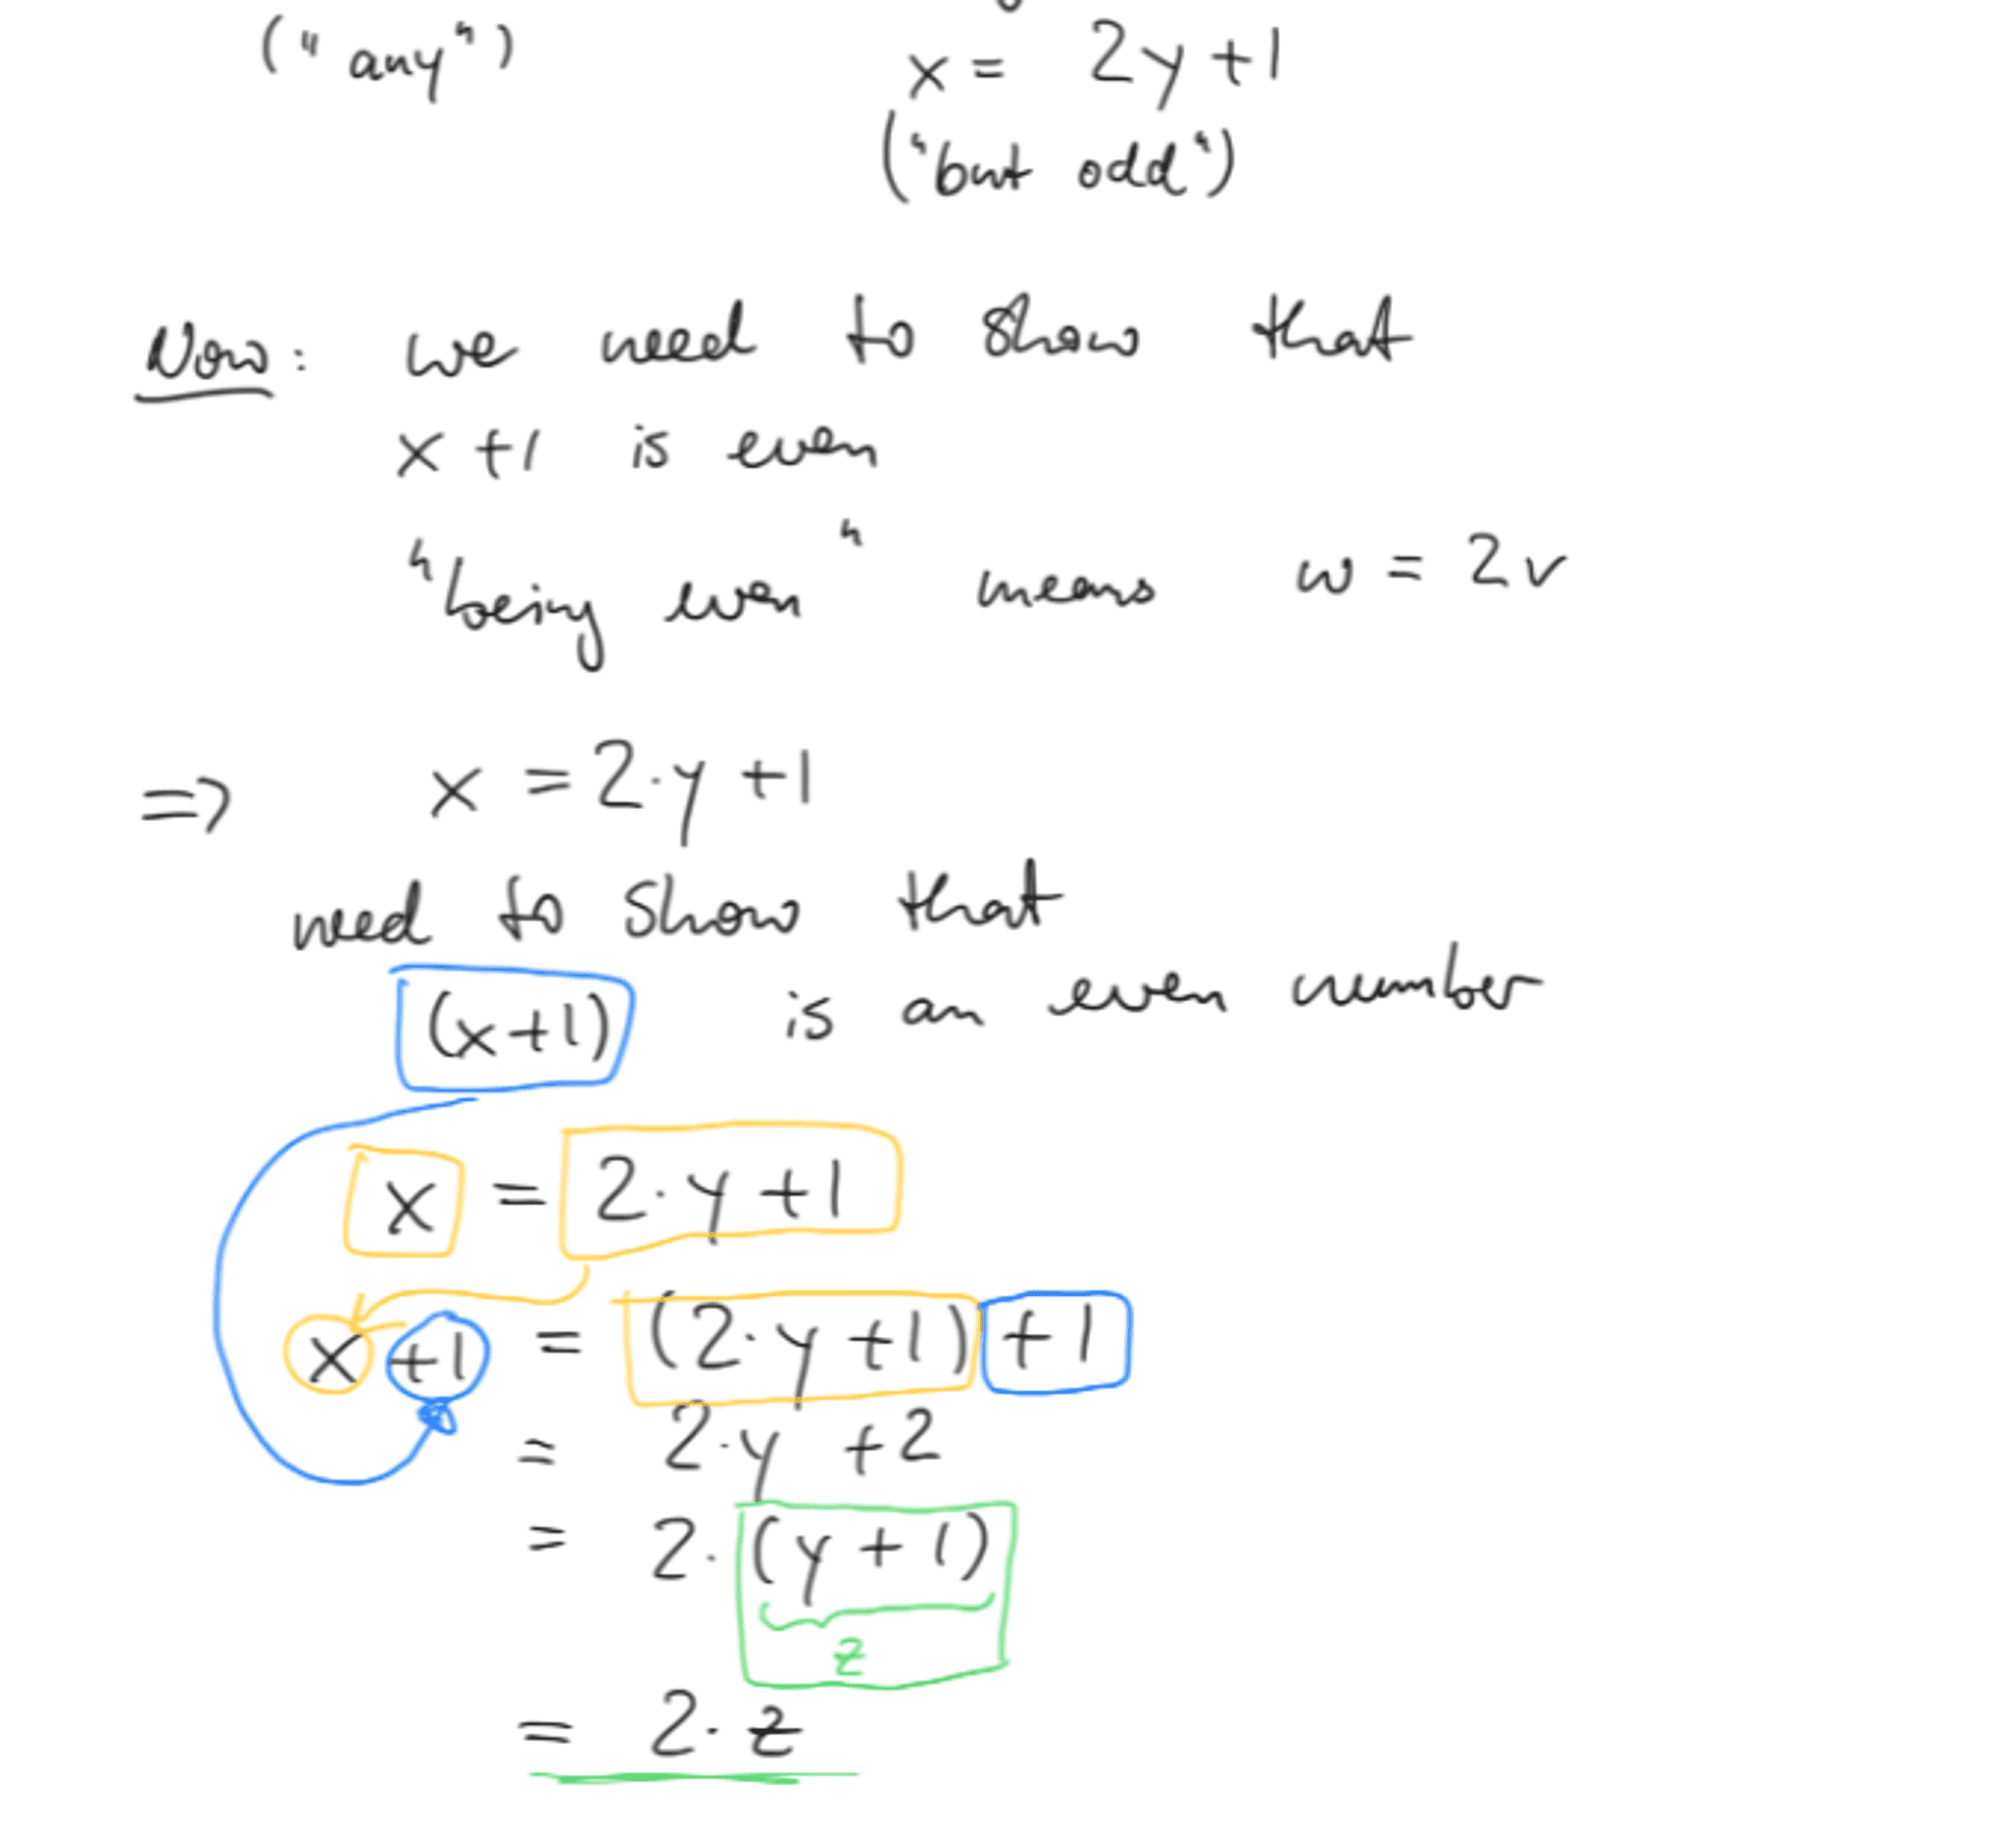 ("any")
x = 2y +1
("but odd")
Now: we need to show that
x +1 is even
"being even" means w = 2v
=> x = 2·y +1
need to show that
(x+1) is an even number
x = 2·y +1
x +1 = (2·y +1) +1
= 2·y +2
= 2·(y + 1)
z
= 2·z